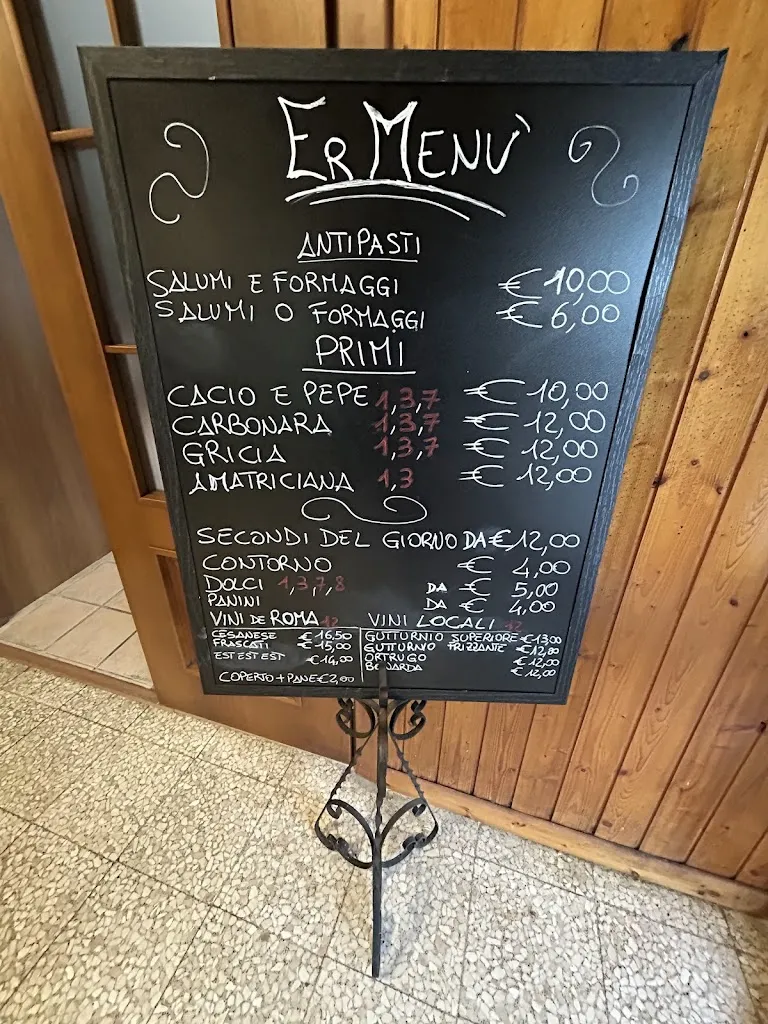 ER MENU'
ANTIPASTI
SALUMI E FORMAGGI € 10,00
SALUMI O FORMAGGI € 6,00
PRIMI
CACIO E PEPE 1,3,7 € 10,00
CARBONARA 1,3,7 € 12,00
GRICIA 1,3,7 € 12,00
AMATRICIANA 1,3 € 12,00
SECONDI DEL GIORNO DA € 12,00
CONTORNO € 4,00
DOLCI 1,3,7,8 DA € 5,00
PANINI DA € 4,00
VINI DE ROMA 12
CESANESE € 16,50
FRASCATI € 15,00
EST EST EST € 14,00
COPERTO + PANE € 2,00
VINI LOCALI 12
GUTTURNIO SUPERIORE € 13,00
GUTTURNO FRIZZANTE € 12,00
ORTRUGO € 12,00
€ 12,00